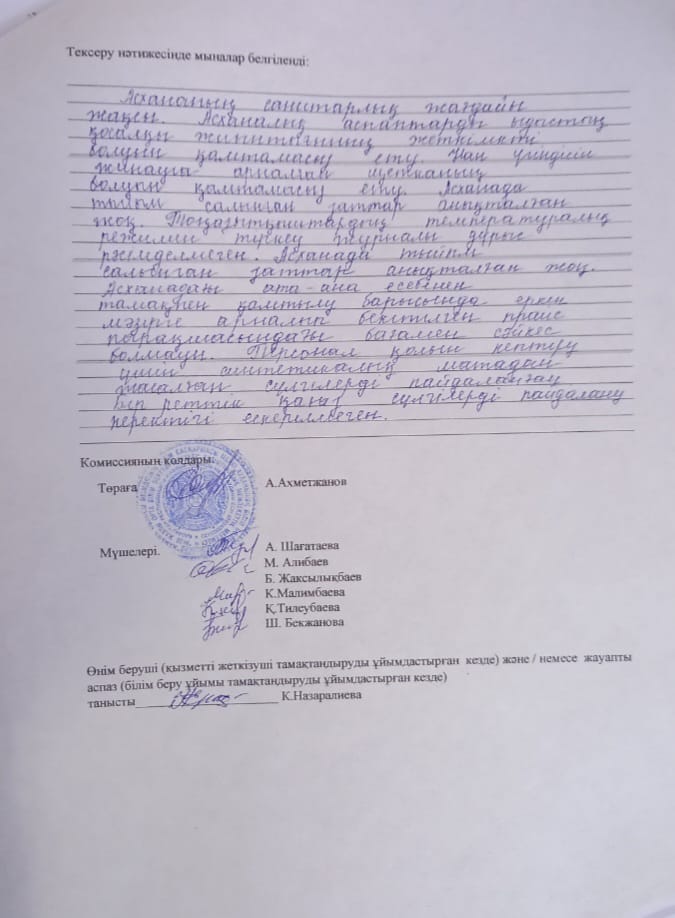 Тексеру нәтижесінде мыналар белгіленді:
Асхананың санитарлық жағдайн
жақсы. Асханалық аспаптарды ыдыстың
қосалқы жиынтығының жеткілікті
болуын қамтамасыз ету. Нан үгіндісін
жинауға арналған щетканың
болуын қамтамасыз ету. Асханада
тыйым салынған заттар анықталған
жоқ. Тоңазытқыштардың температуралық
режимін тіркеу журналы дұрыс
рәсімделмеген. Асханада тыйым
салынған заттар анықталған жоқ.
Асханадағы ата-ана есебінен
тамақпен қамтылу барысында еркін
мәзірге арналып бекітілген прайс
парақшасындағы бағамен сәйкес
болмауы. Персонал қолын кептіру
үшін синтетикалық матадан
жасалған сүлгілерді пайдаланған
бір реттік қағаз сүлгілерді пайдалану
керектігі ескерілмеген.
Комиссияның қолдары:
Төраға А.Ахметжанов
Мүшелері. А. Шағатаева
М. Алибаев
Б. Жаксылықбаев
К.Малимбаева
Қ.Тилеубаева
Ш. Бекжанова
Өнім беруші (қызметті жеткізуші тамақтандыруды ұйымдастырған кезде) және / немесе жауапты
аспаз (білім беру ұйымы тамақтандыруды ұйымдастырған кезде)
танысты К.Назаралиева